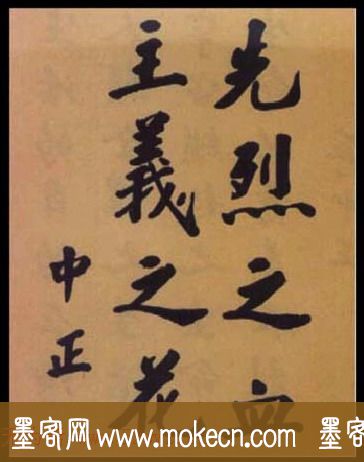 先烈之血
主義之花
中正
墨客网 www.mokecn.com 墨客